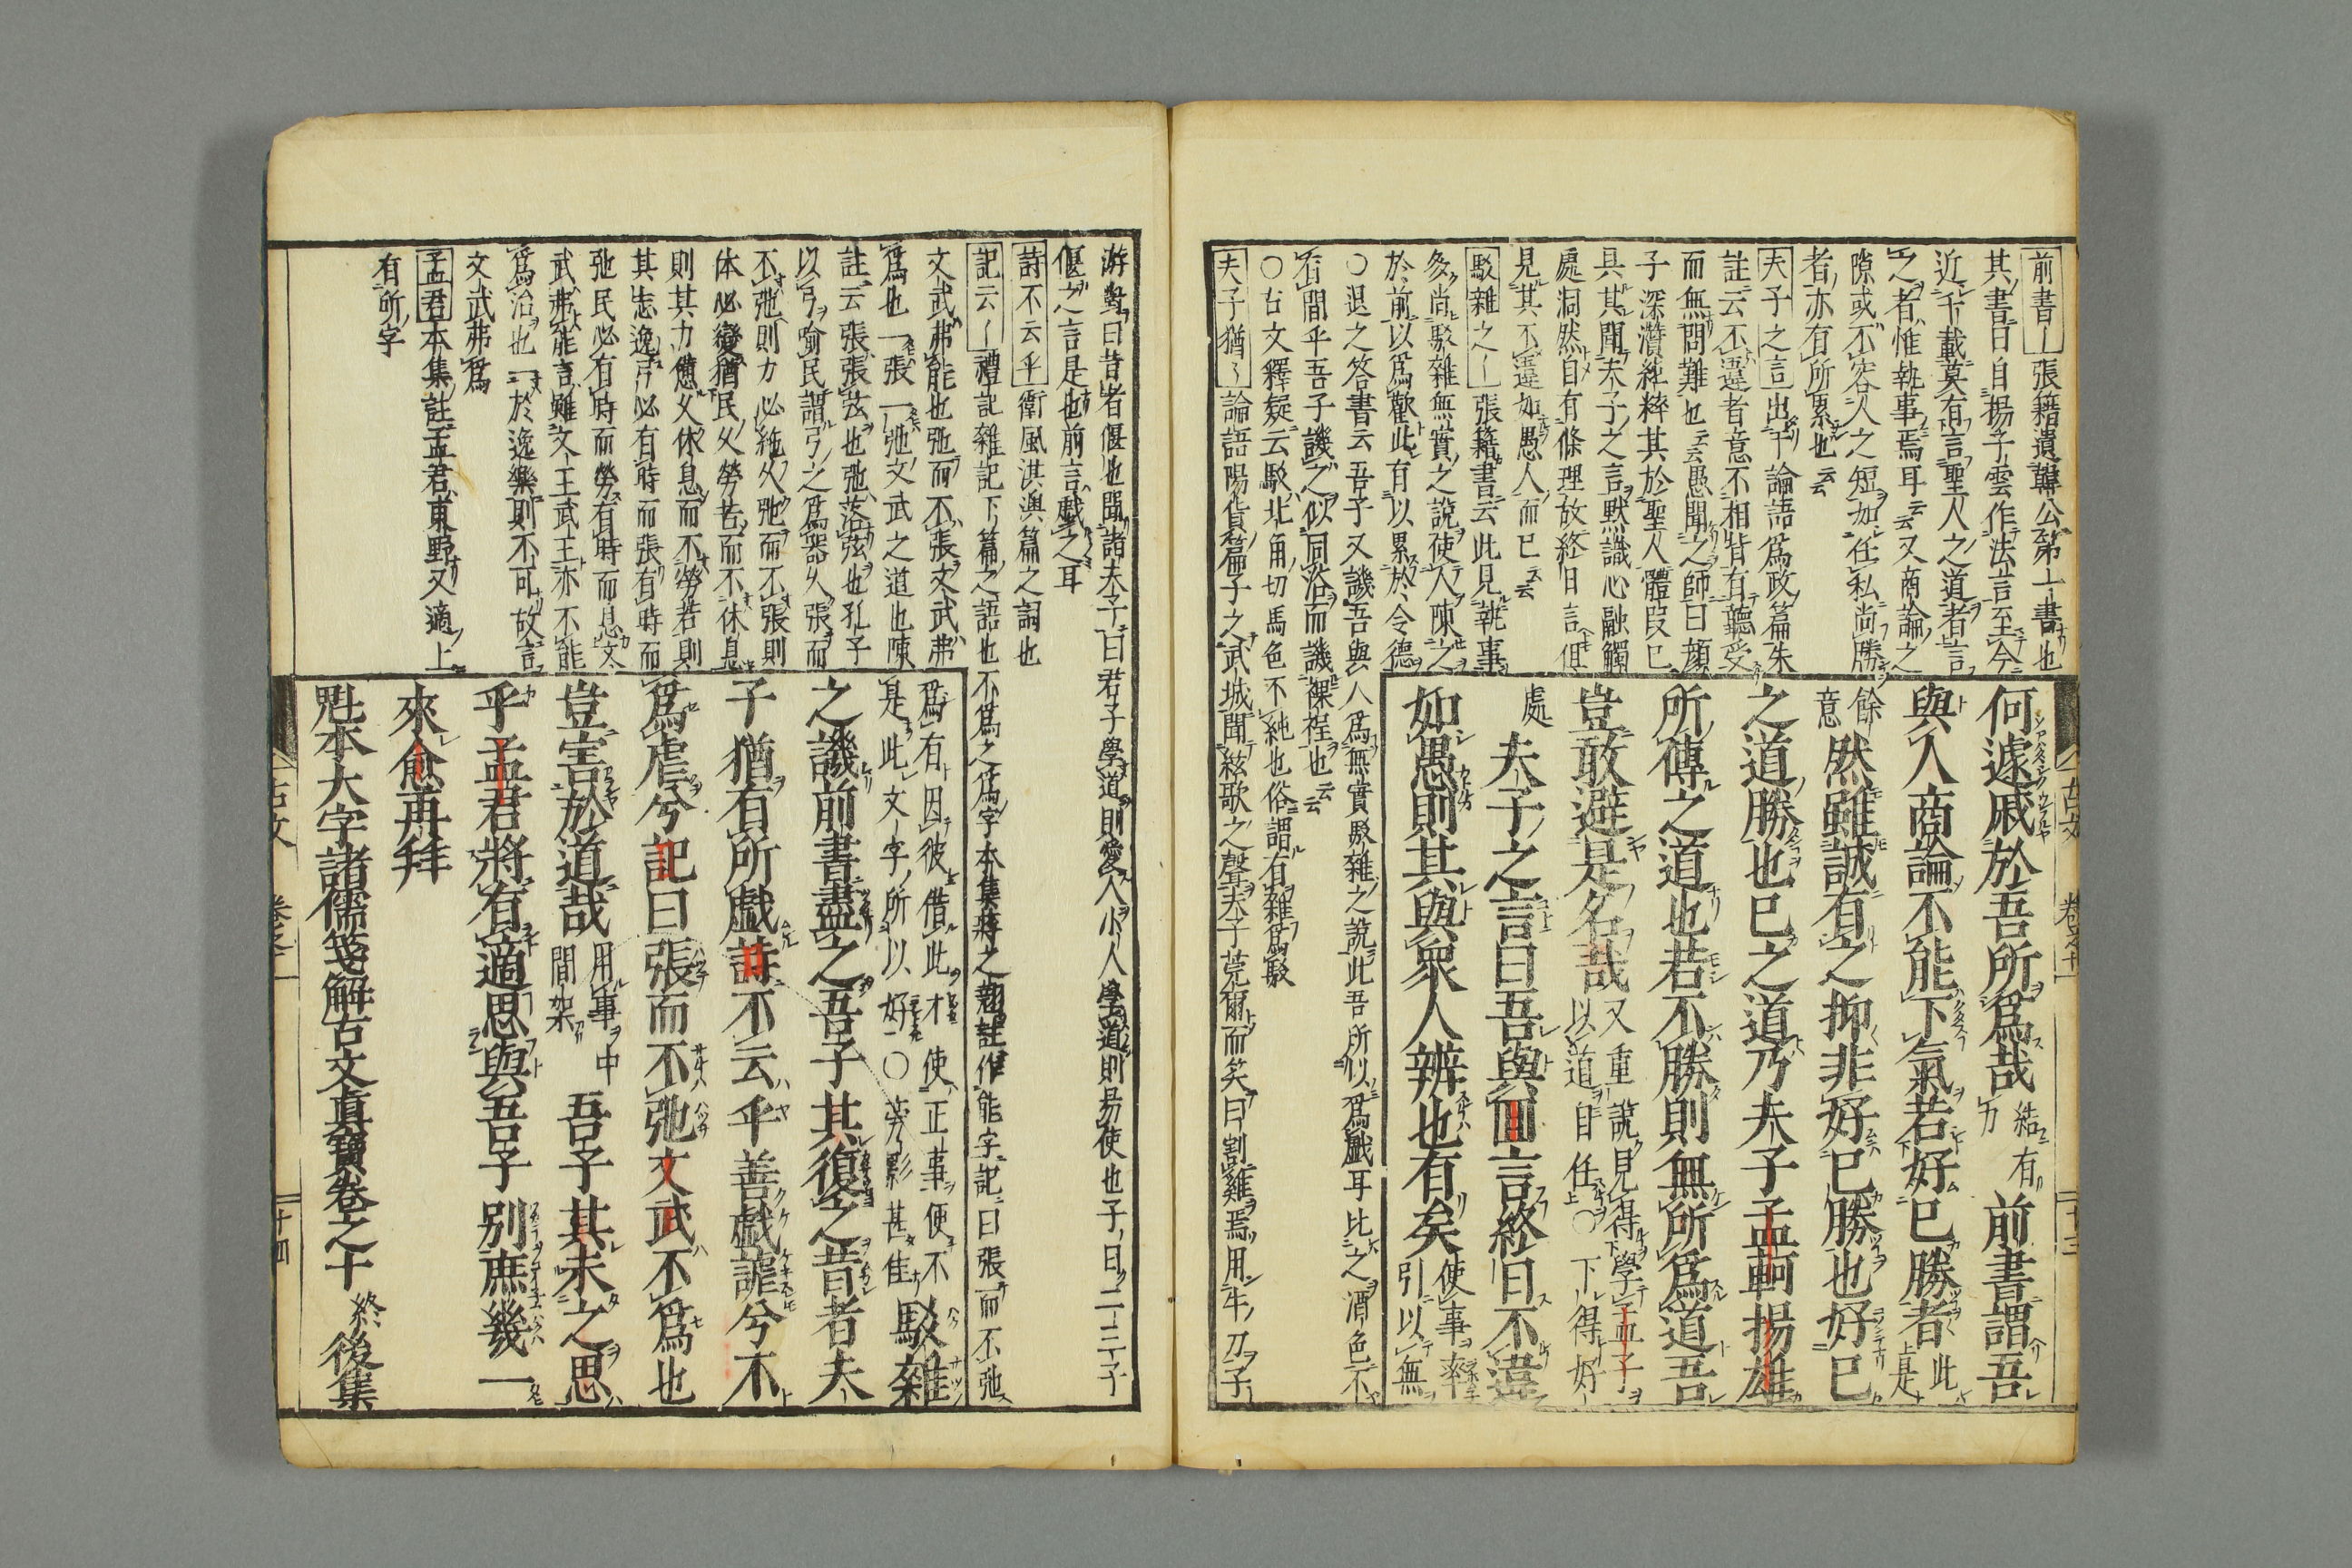 前書〡張籍遺韓公第二書也
其書曰自揚子雲作法言至今
近千載莫有言聖人之道者言
之者惟執事焉耳云云又商論之
際或不容人之短如任私尚勝
者亦有所累也云云
夫子之言出于論語爲政篇朱
註云不違者意不相背有聽受
而無問難也云云愚聞之師曰顏
子深潛純粹其於聖人體段已
具其聞夫子之言默識心融觸
處洞然自有條理故終日言但
見其不違如愚人而已云云
駁雜之〡張籍書云此見執事
多尚駁雜無實之說使人陳之
於前以爲歡此有以累於令德
○退之答書云吾子又譏吾與人爲無實駁雜之說此吾所以爲戯耳比之酒色不
有間乎吾子譏之似同浴而譏裸裎也云云
○古文釋疑云駁北角切馬色不純也俗謂有雜爲駁
夫子猶〻論語陽貨篇子之武城聞絃歌之聲夫子莞爾而笑曰割雞焉用牛刀子
何遽戚於吾所爲哉 結有力 前書謂吾
與人商論不能下氣若好已勝者 此是
餘意 然雖誠有之抑非好已勝也好已
之道勝也已之道乃夫子孟軻揚雄
所傳之道也若不勝則無所爲道吾
豈敢避是名哉 又重說見得學孟子以道自任○下得好
處 夫子之言曰吾與回言終日不違
如愚則其與衆人辨也有矣 使事率引以無
古文 卷之十 十三
游對曰昔者偃也聞諸夫子曰君子學道則愛人小人學道則易使也子曰二三子
偃之言是也前言戯之耳
詩不云乎衛風淇澳篇之詞也
記云〡禮記雜記下篇之語也不爲之爲字本集蔣之翹註作能字記曰張而不弛
文武弗能也弛而不張文武弗
爲也一張一弛文武之道也陳
註云張張弦也弛落弦也孔子
以弓喻民謂弓之爲器久張而
不弛則力必絶久弛而不張則
体必變猶民久勞苦而不休息
則其力憊久休息而不勞苦則
其志逸弓必有時而張有時而
弛民必有時而勞有時而息文
武弗能言雖文王武王亦不能
爲治也一於逸樂則不可故言
文武弗爲
孟君本集註孟君東野又適上
有所字
爲有因彼借此才使正事便不
是此文字所以好一○旁影甚佳 駁雜
之譏前書盡之吾子其復之昔者夫
子猶有所戯詩不云乎善戯謔兮不
爲虐兮記曰張而不弛文武不爲也
豈害於道哉 用事中間架 吾子其未之思
乎孟君將有適思與吾子別庶幾一
來愈再拜
魁本大字諸儒箋解古文眞寶卷之十 終後集
古文 卷之十 十四